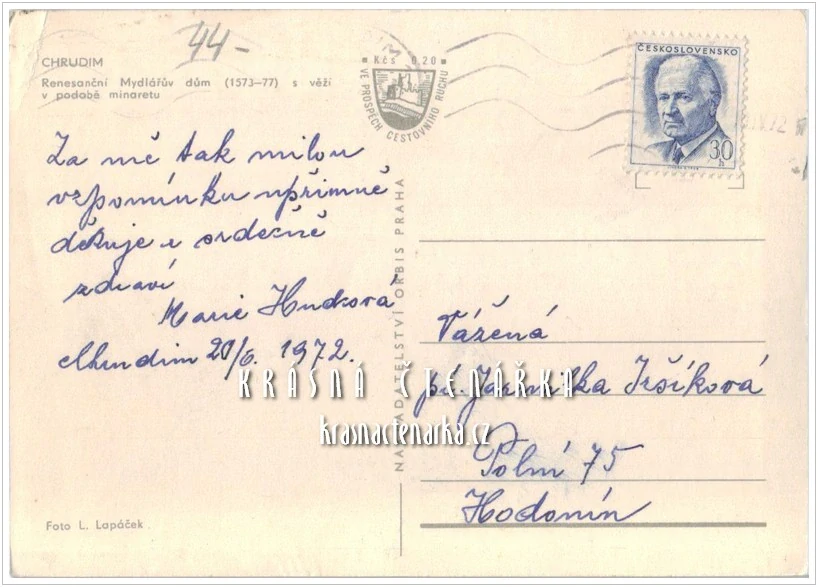 44-
CHRUDIM
Renesanční Mydlářův dům (1573—77) s věží
v podobě minaretu
Kčs 0,20
VE PROSPĚCH CESTOVNÍHO RUCHU
ČESKOSLOVENSKO
30
h
Za mé tak milou
vzpomínku upřímně
děkuje a srdečně
zdraví
Marie Hudková
Chrudim 20/6. 1972.
NAKLADATELSTVÍ ORBIS PRAHA
Vážená
pí. Jarmilka Iršíková
Polní 75
Hodonín
KRÁSNÁ ČTENÁŘKA
krasnactenarka.cz
Foto L. Lapáček